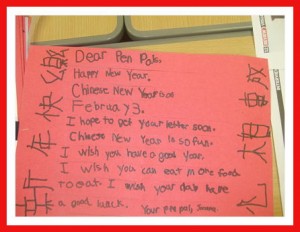 Dear Pen Pals,
Happy New Year.
Chinese New Year is on
February 3.
I hope to get your letter soon.
Chinese New Year is so fun.
I wish you have a good year.
I wish you can eat
food
to eat. I wish your dad have
a good luck.
Your pen pal,
新
年
快
樂